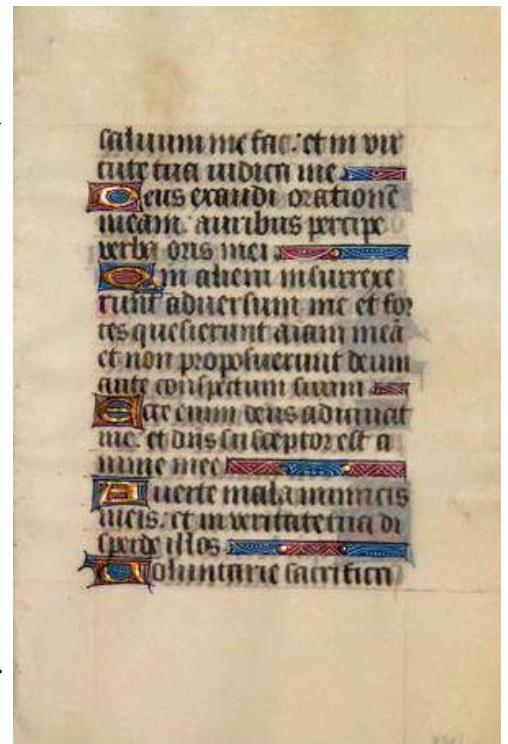 saluum me fac: et in vir
tute tua iudica me
Deus exaudi orationē
meam: auribus percipe
verba oris mei
Qm alieni insurrexe
runt aduersum me et for
tes quesierunt aīam meā
et non proposuerunt deum
ante conspectum suum
Ecce enim deus adiuuat
me: et dn̄s susceptor est a
nime mee
Auerte mala inimicis
meis: et in veritate tua di
sperde illos
Voluntarie sacrifica